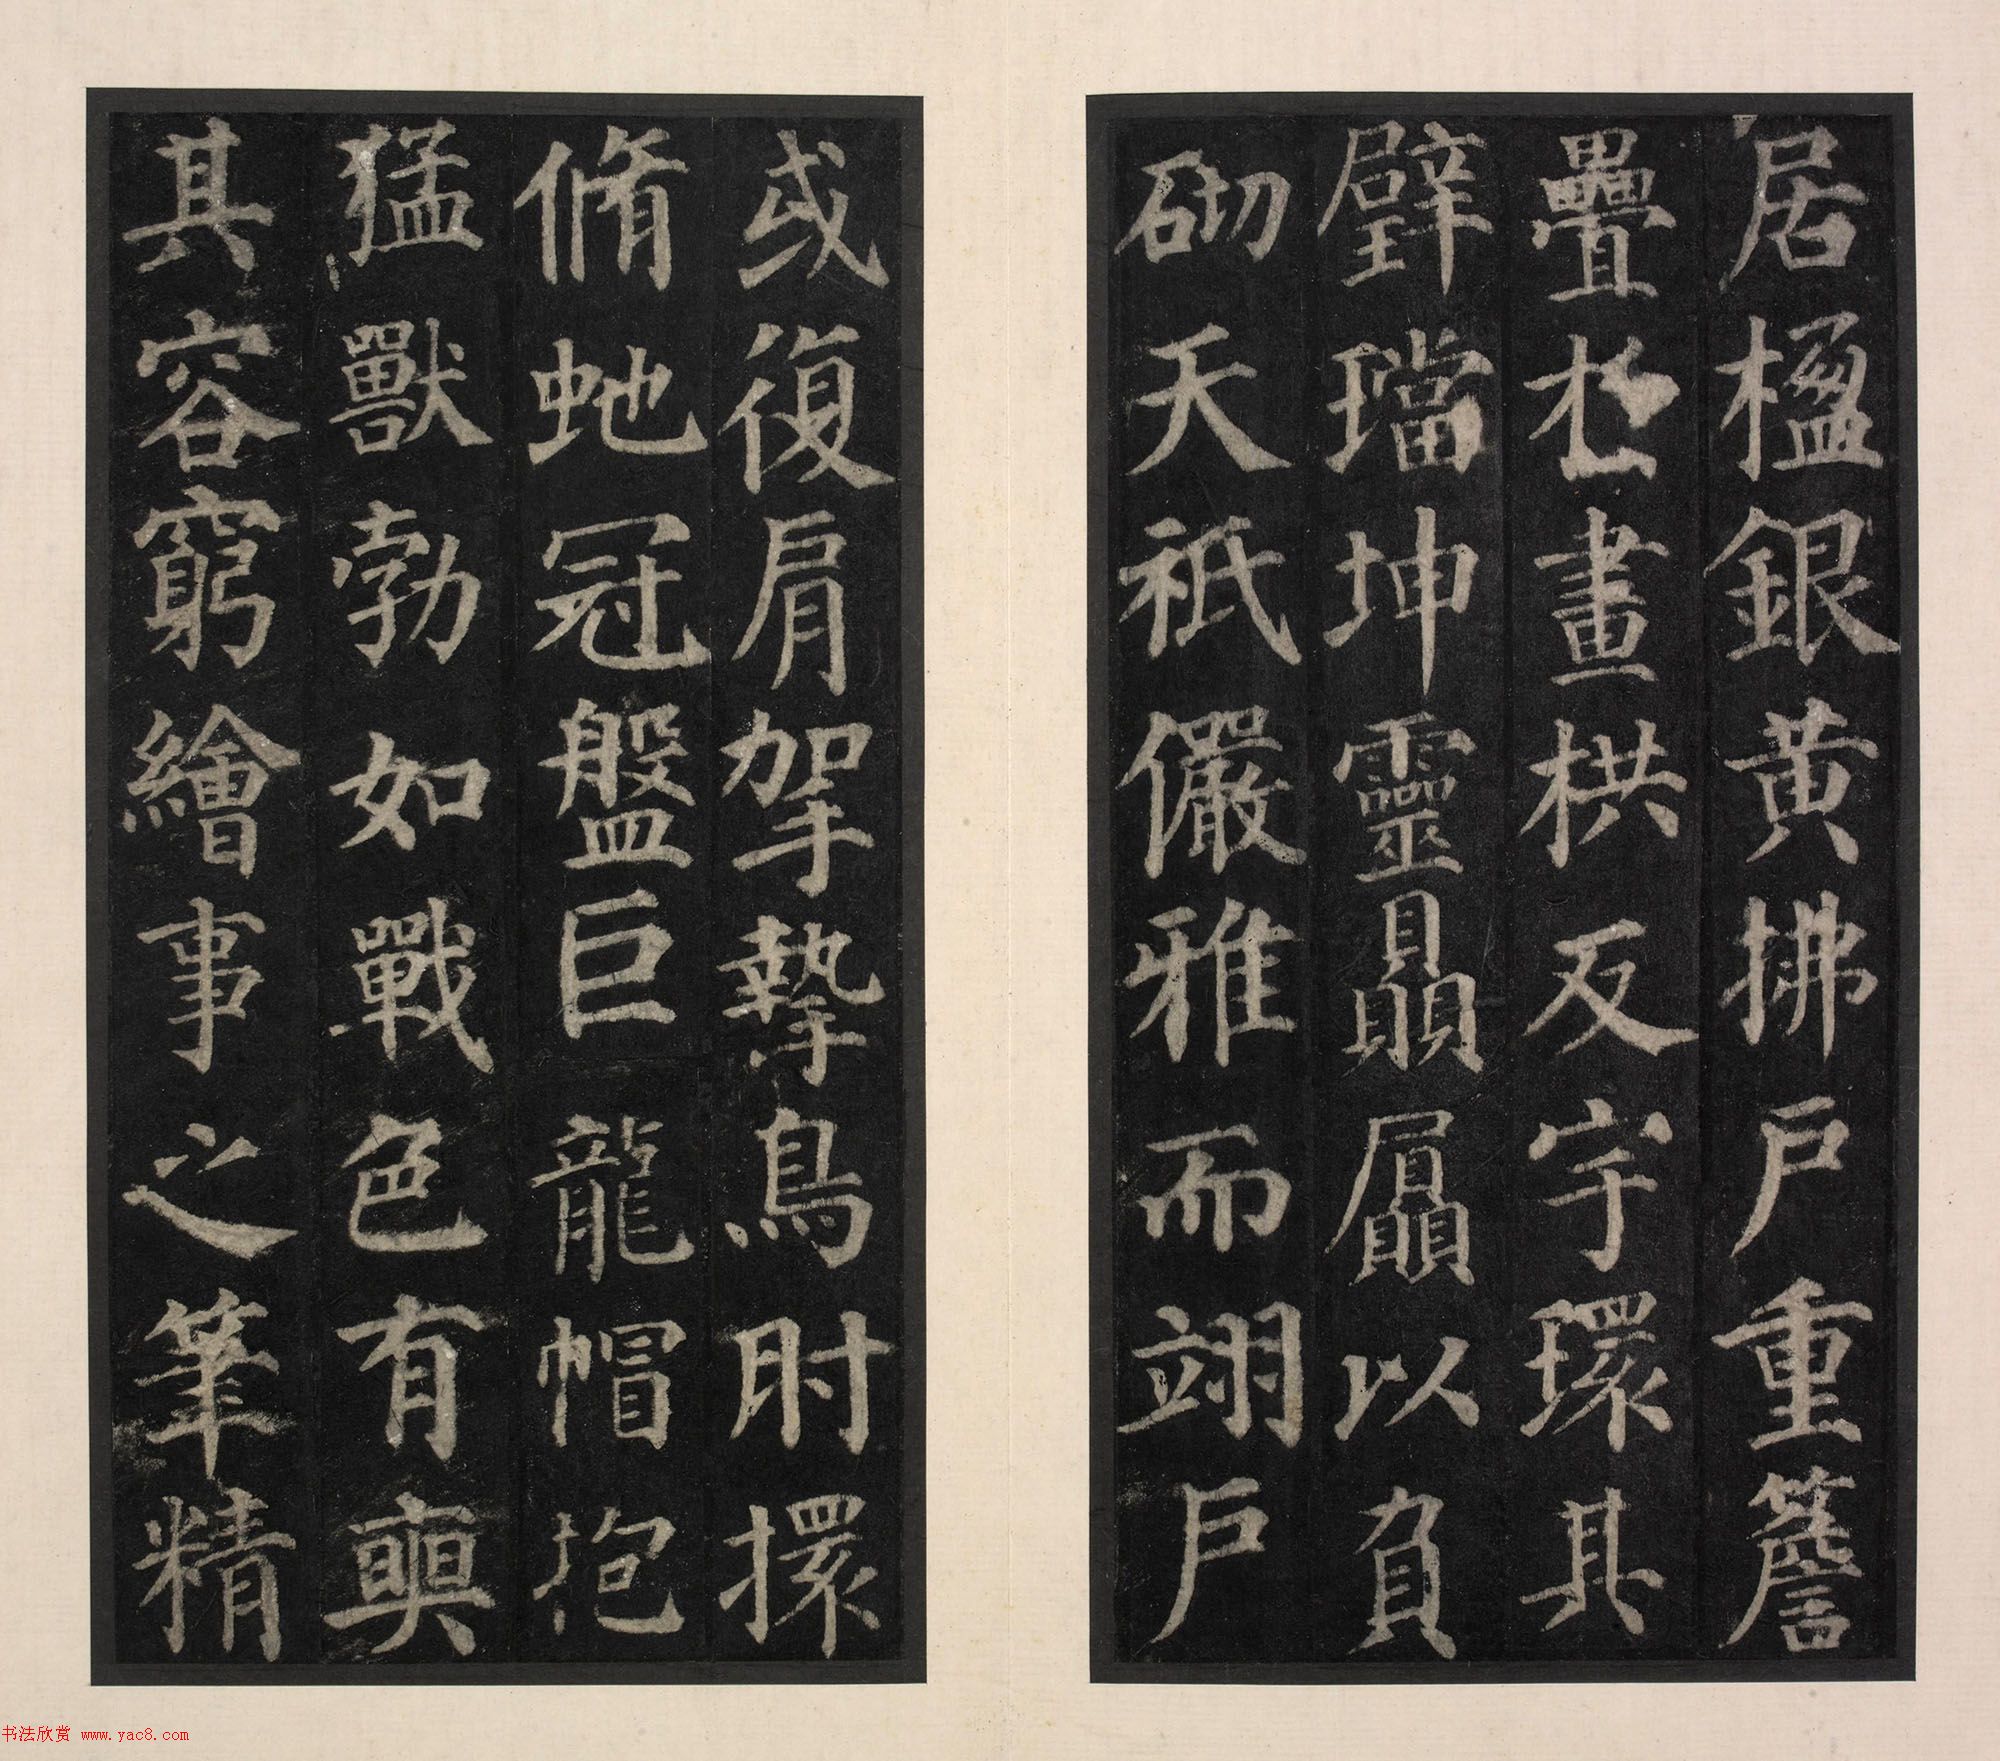 居楹銀黃拂戶重簷
疊栌畫栱反宇環其
壁璫坤靈贔屭以負
砌天祇儼雅而翊戶
或復肩挐摯鳥肘擐
脩虵冠盤巨龍帽抱
猛獸勃如戰色有奭
其容窮繪事之筆精
书法欣赏 www.yac8.com